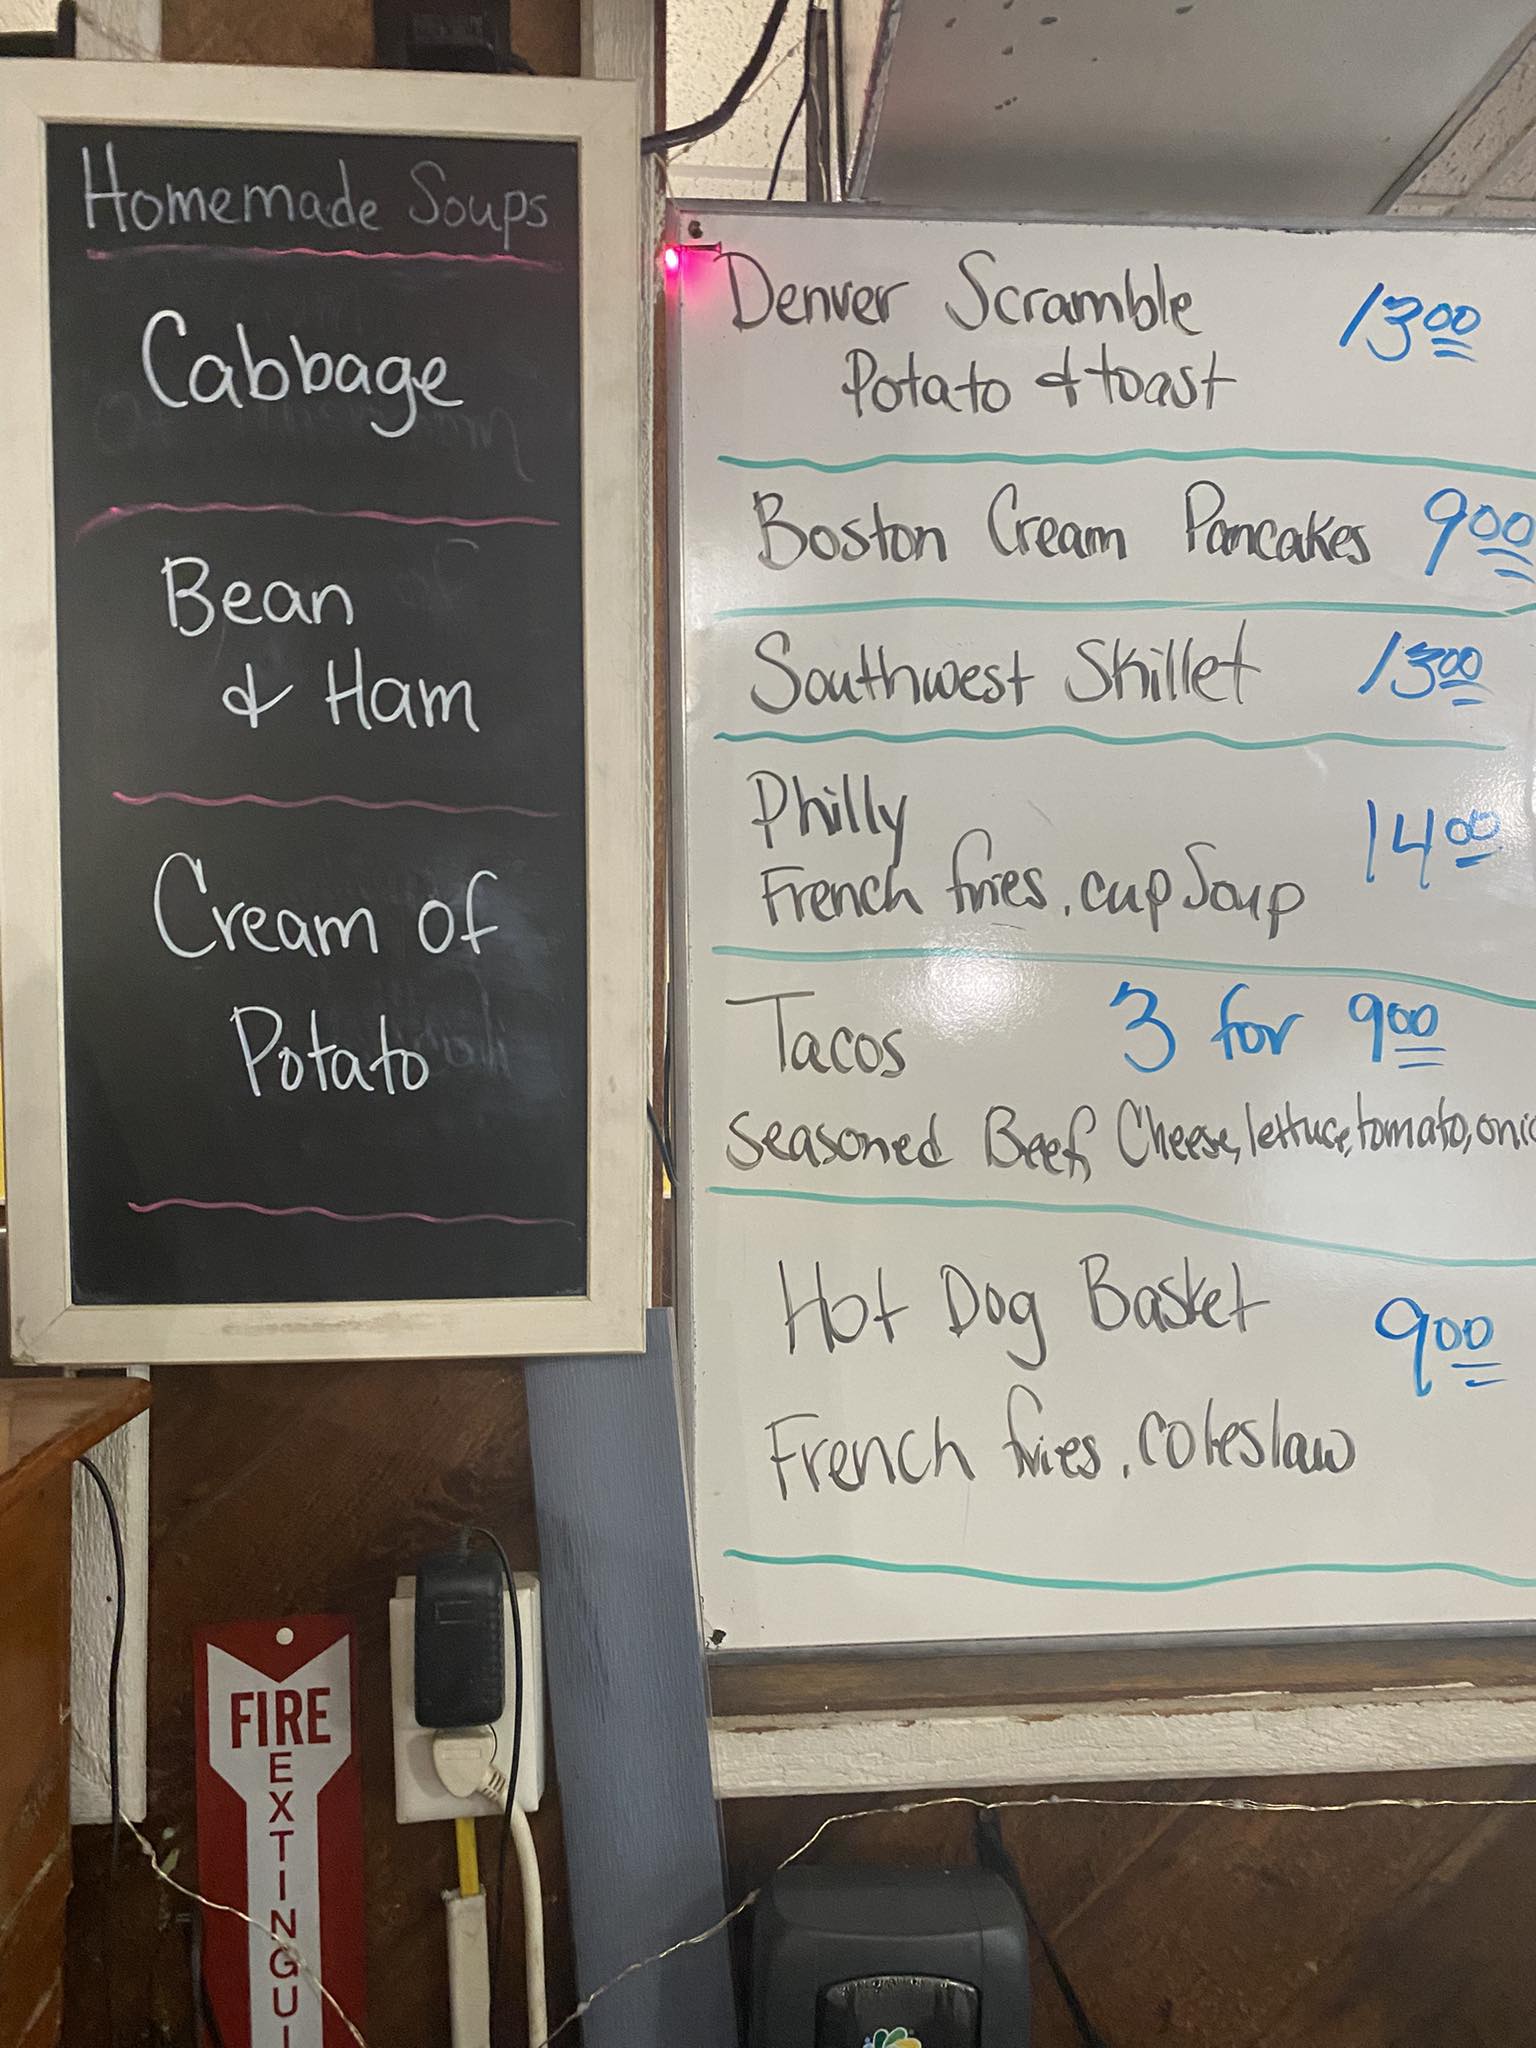 Homemade Soups
Cabbage
Bean
& Ham
Cream of
Potato
Denver Scramble 13.00
Potato & toast
Boston Cream Pancakes 9.00
Southwest Skillet 13.00
Philly 14.00
French fries, cup Soup
Tacos 3 for 9.00
Seasoned Beef, Cheese, lettuce, tomato, onio
Hot Dog Basket 9.00
French fries, coleslaw
FIRE
EXTINGUI